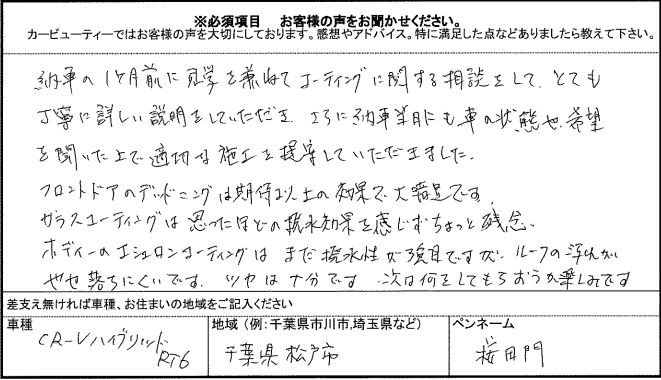 ※必須項目　お客様の声をお聞かせください。
カービューティーではお客様の声を大切にしております。感想やアドバイス。特に満足した点などありましたら教えて下さい。
納車の1ヶ月前に見学を兼ねてコーティングに関する相談をして、とても
丁寧に詳しい説明をしていただき、さらに納車当日にも車の状態や希望
を聞いた上で適切な施工を提案していただきました。
フロントドアのデッドニングは期待以上の効果で大満足です。
ガラスコーティングは思ったほどの撥水効果を感じずちょっと残念。
ボディーのエシュロンコーティングはまだ撥水性が強目ですが、ルーフの汚れが
やや落ちにくいです。ツヤは十分です。次は何をしてもらおうか楽しみです
差支え無ければ車種、お住まいの地域をご記入ください
車種
地域（例：千葉県市川市,埼玉県など）
ペンネーム
CR-Vハイブリッド
RT6
千葉県松戸市
桜田門